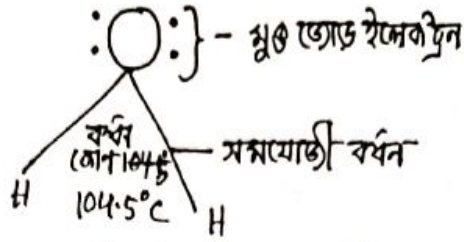 :O:} - মুক্ত জোড় ইলেকট্রন
বন্ধন
কোণ 104.5
সমযোজী বন্ধন
104.5°C
H
H